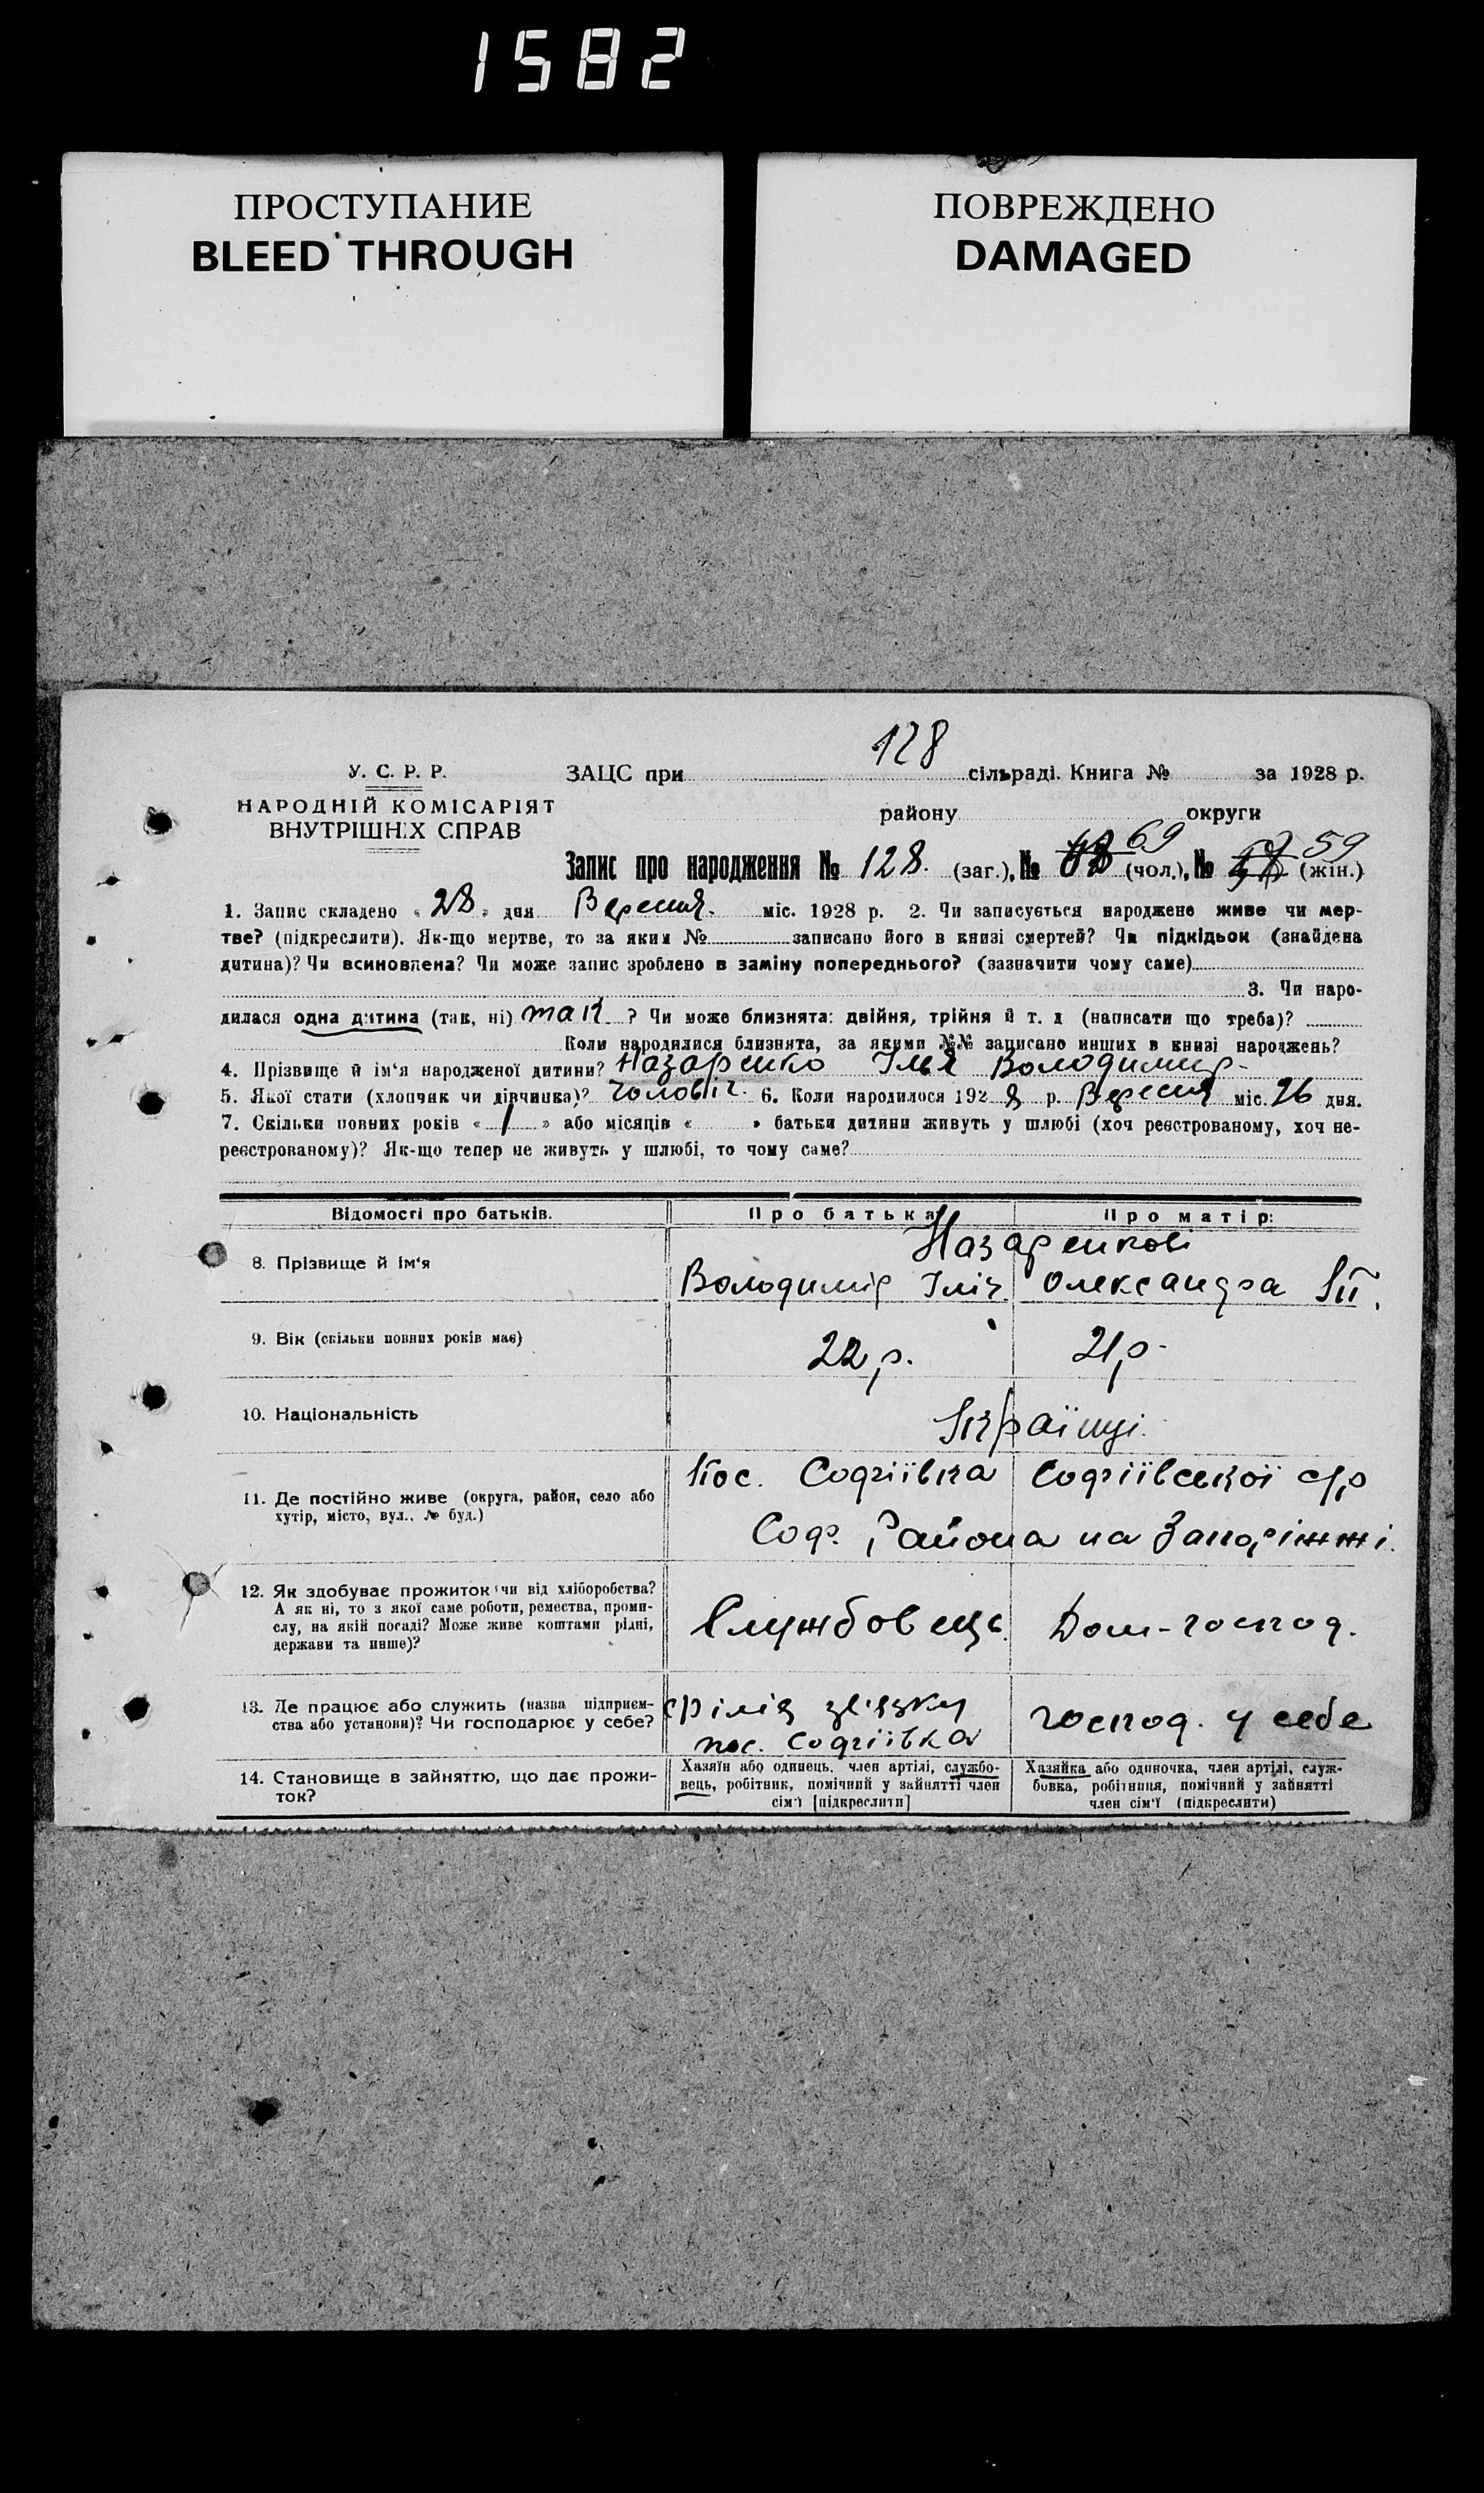 1582
ПРОСТУПАНИЕ
BLEED THROUGH
ПОВРЕЖДЕНО
DAMAGED
128
У. С. Р. Р.
НАРОДНІЙ КОМІСАРІЯТ
ВНУТРІШНІХ СПРАВ
ЗАЦС при сільраді. Книга № за 1928 р.
району округи
Запис про народження № 128. (заг.), № 69 (чол.), № 59 (жін.)
1. Запис складено « 28 » дня Вересня. міс. 1928 р. 2. Чи записується народжене живе чи мер-
тве? (підкреслити). Як-що мертве, то за яким № записано його в книзі смертей? Чи підкідьок (знайдена
дитина)? Чи всиновлена? Чи може запис зроблено в заміну попереднього? (зазначити чому саме)
3. Чи наро-
дилася одна дитина (так, ні) так ? Чи може близнята: двійня, трійня й т. д (написати що треба)?
Коли народилися близнята, за якими №№ записано инших в книзі народжень?
4. Прізвище й ім‘я народженої дитини? Назаренко Ілья Володимир-
5. Якої стати (хлопчяк чи дівчинка)? Чоловіч. 6. Коли народилося 192 8 р. Вересня міс. 26 дня.
7. Скільки повних років « 1 » або місяців « » батьки дитини живуть у шлюбі (хоч реєстрованому, хоч не-
реєстрованому)? Як-що тепер не живуть у шлюбі, то чому саме?
Відомості про батьків. Про батька Про матір:
Назаренкові
8. Прізвище й ім‘я
Володимір Іліч Олександра
9. Вік (скільки повних років має)
22 р. 21 р.
10. Національність
Українці.
Пос. Софіївка Софіївської с/р
11. Де постійно живе (округа, район, село або
хутір, місто, вул., № буд.)
Соф. Района на Запоріжжі.
12. Як здобуває прожиток чи від хліборобства?
А як ні, то з якої саме роботи, ремества, проми-
слу, на якій посаді? Може живе коштами рідні,
держави та инше)?
Службовець. Дом-господ.
13. Де працює або служить (назва підприєм-
ства або установи)? Чи господарює у себе?
Філія звязку
пос. Софіівка
господ. у себе
14. Становище в зайняттю, що дає прожи-
ток?
Хазяїн або одинець, член артілі, службо-
вець, робітник, помічний у зайнятті член
сім'ї [підкреслити]
Хазяйка або одиночка, член артілі, служ-
бовка, робітниця, помічний у зайнятті
член сім'ї (підкреслити)